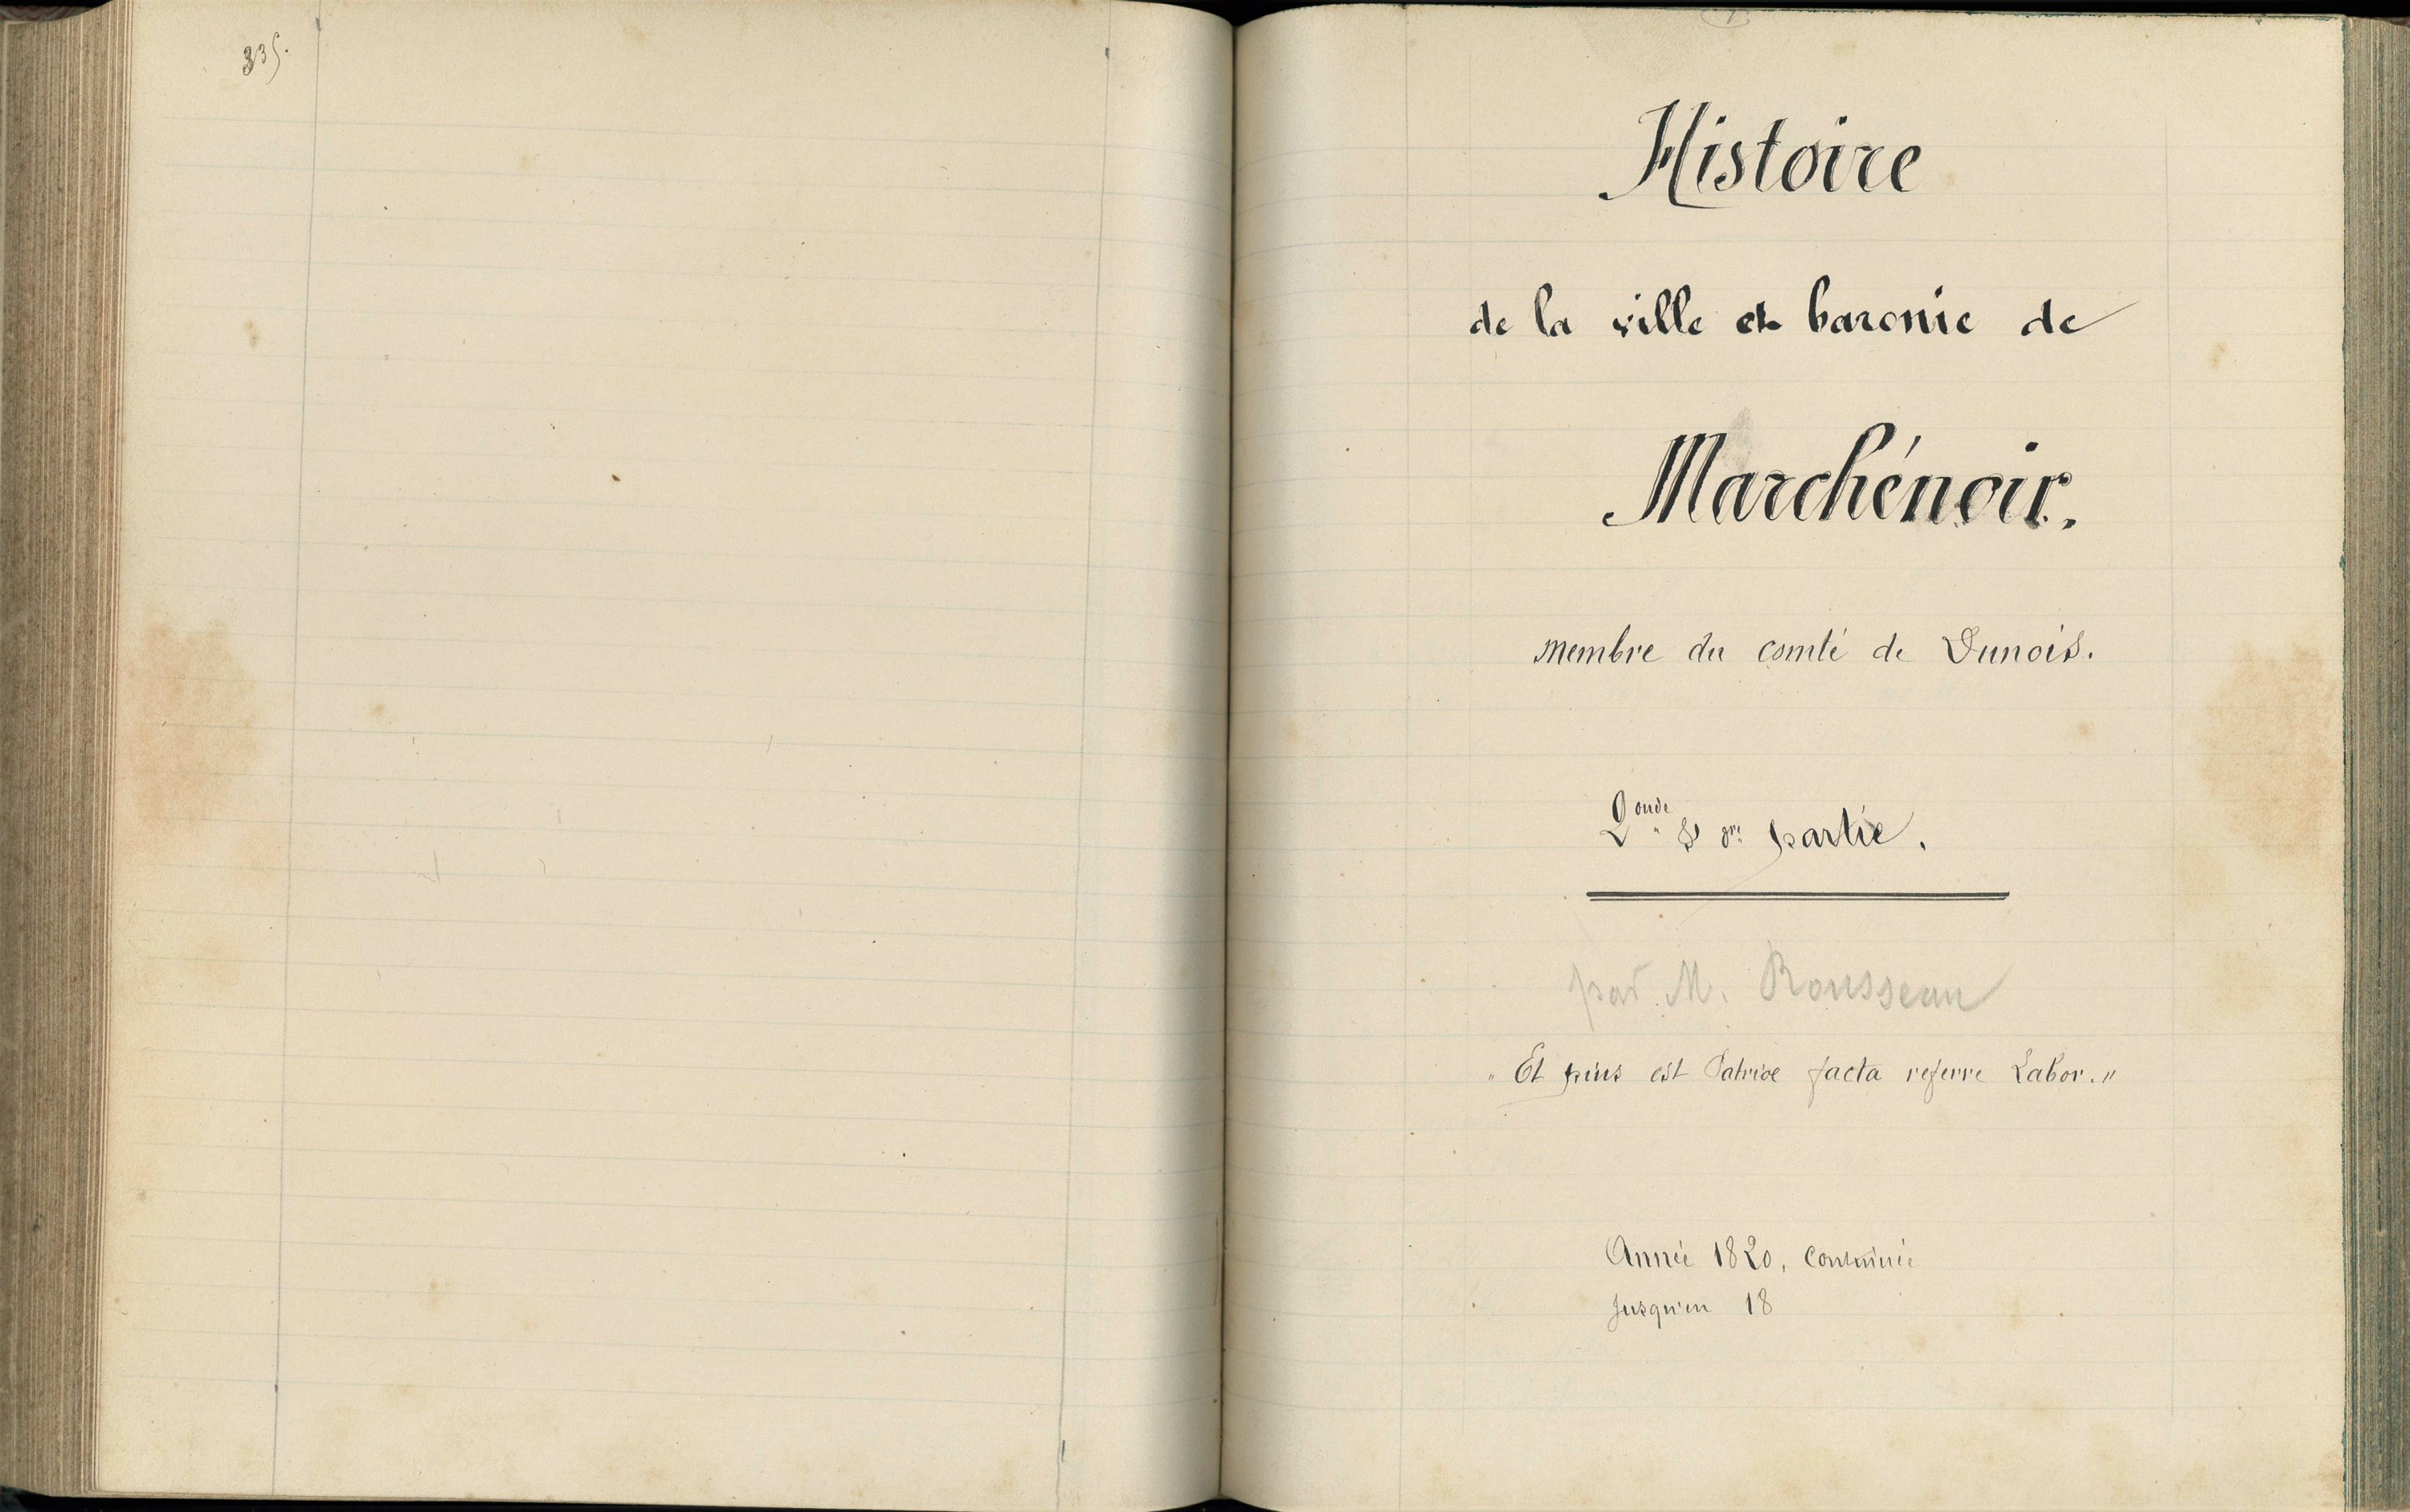 335.
Histoire
de la ville et baronie de
Marchénoir.
membre du comté de Dunois.
2onde & dre partie.
par M. Rousseau
" Et pius est Patriae facta referre Labor. "
Année 1820, continuée
jusqu'en 18